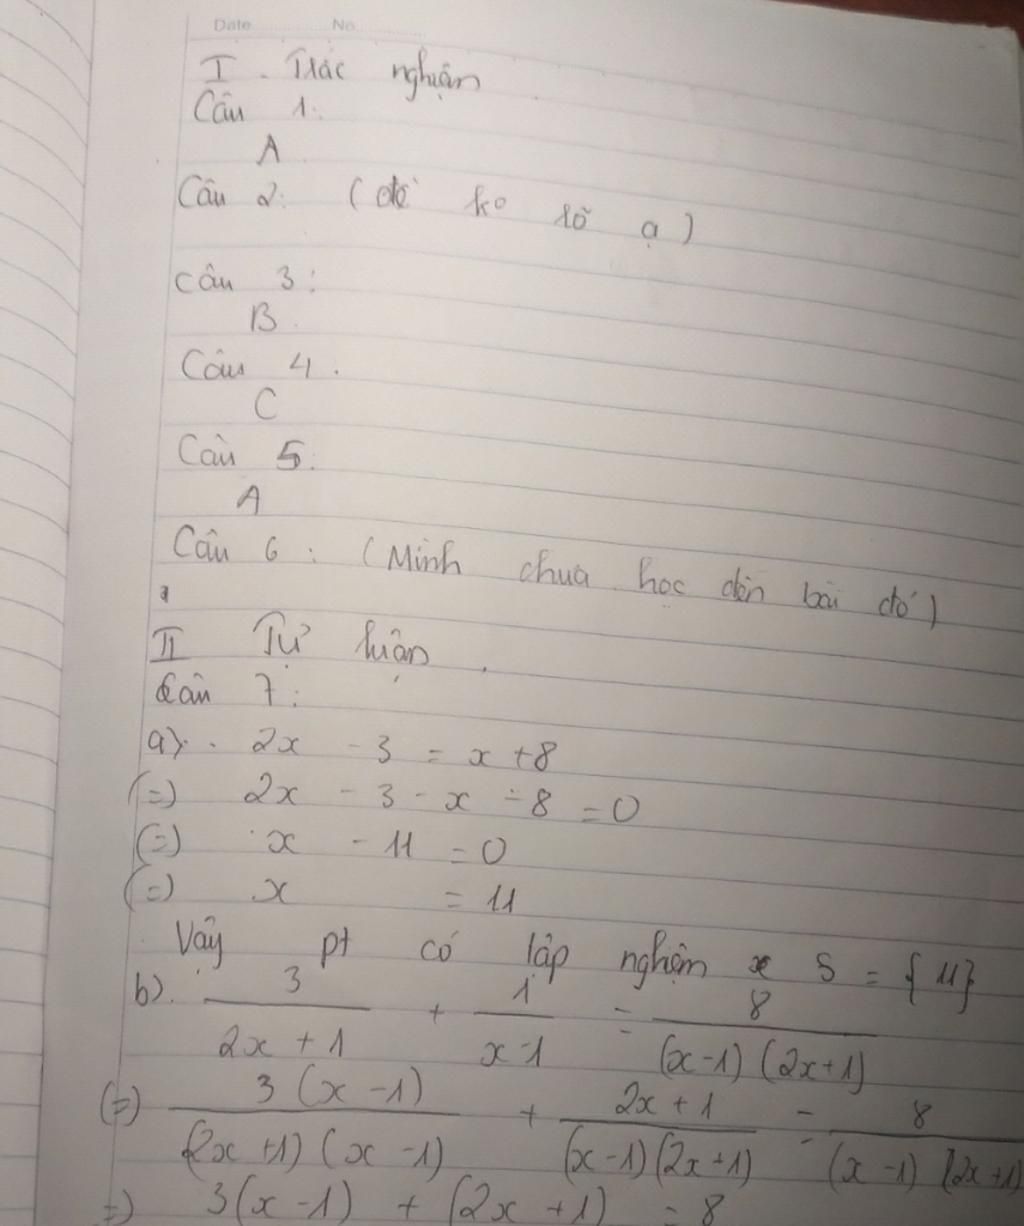 Date No
I. Trắc nghiệm
Câu 1:
A
Câu 2: (đề ko rõ ạ)
Câu 3:
B.
Câu 4.
C
Câu 5:
A
Câu 6: (Mình chưa học đến bài đó)
II Tự luận.
Câu 7:
a). 2x - 3 = x + 8
(=) 2x - 3 - x - 8 = 0
(=) x - 11 = 0
(=) x = 11
Vậy pt có tập nghiệm S = {11}
b). 3/(2x + 1) + 1/(x - 1) = 8/((x - 1)(2x + 1))
(=) 3(x - 1)/((2x + 1)(x - 1)) + (2x + 1)/((x - 1)(2x + 1)) = 8/((x - 1)(2x + 1))
=) 3(x - 1) + (2x + 1) = 8